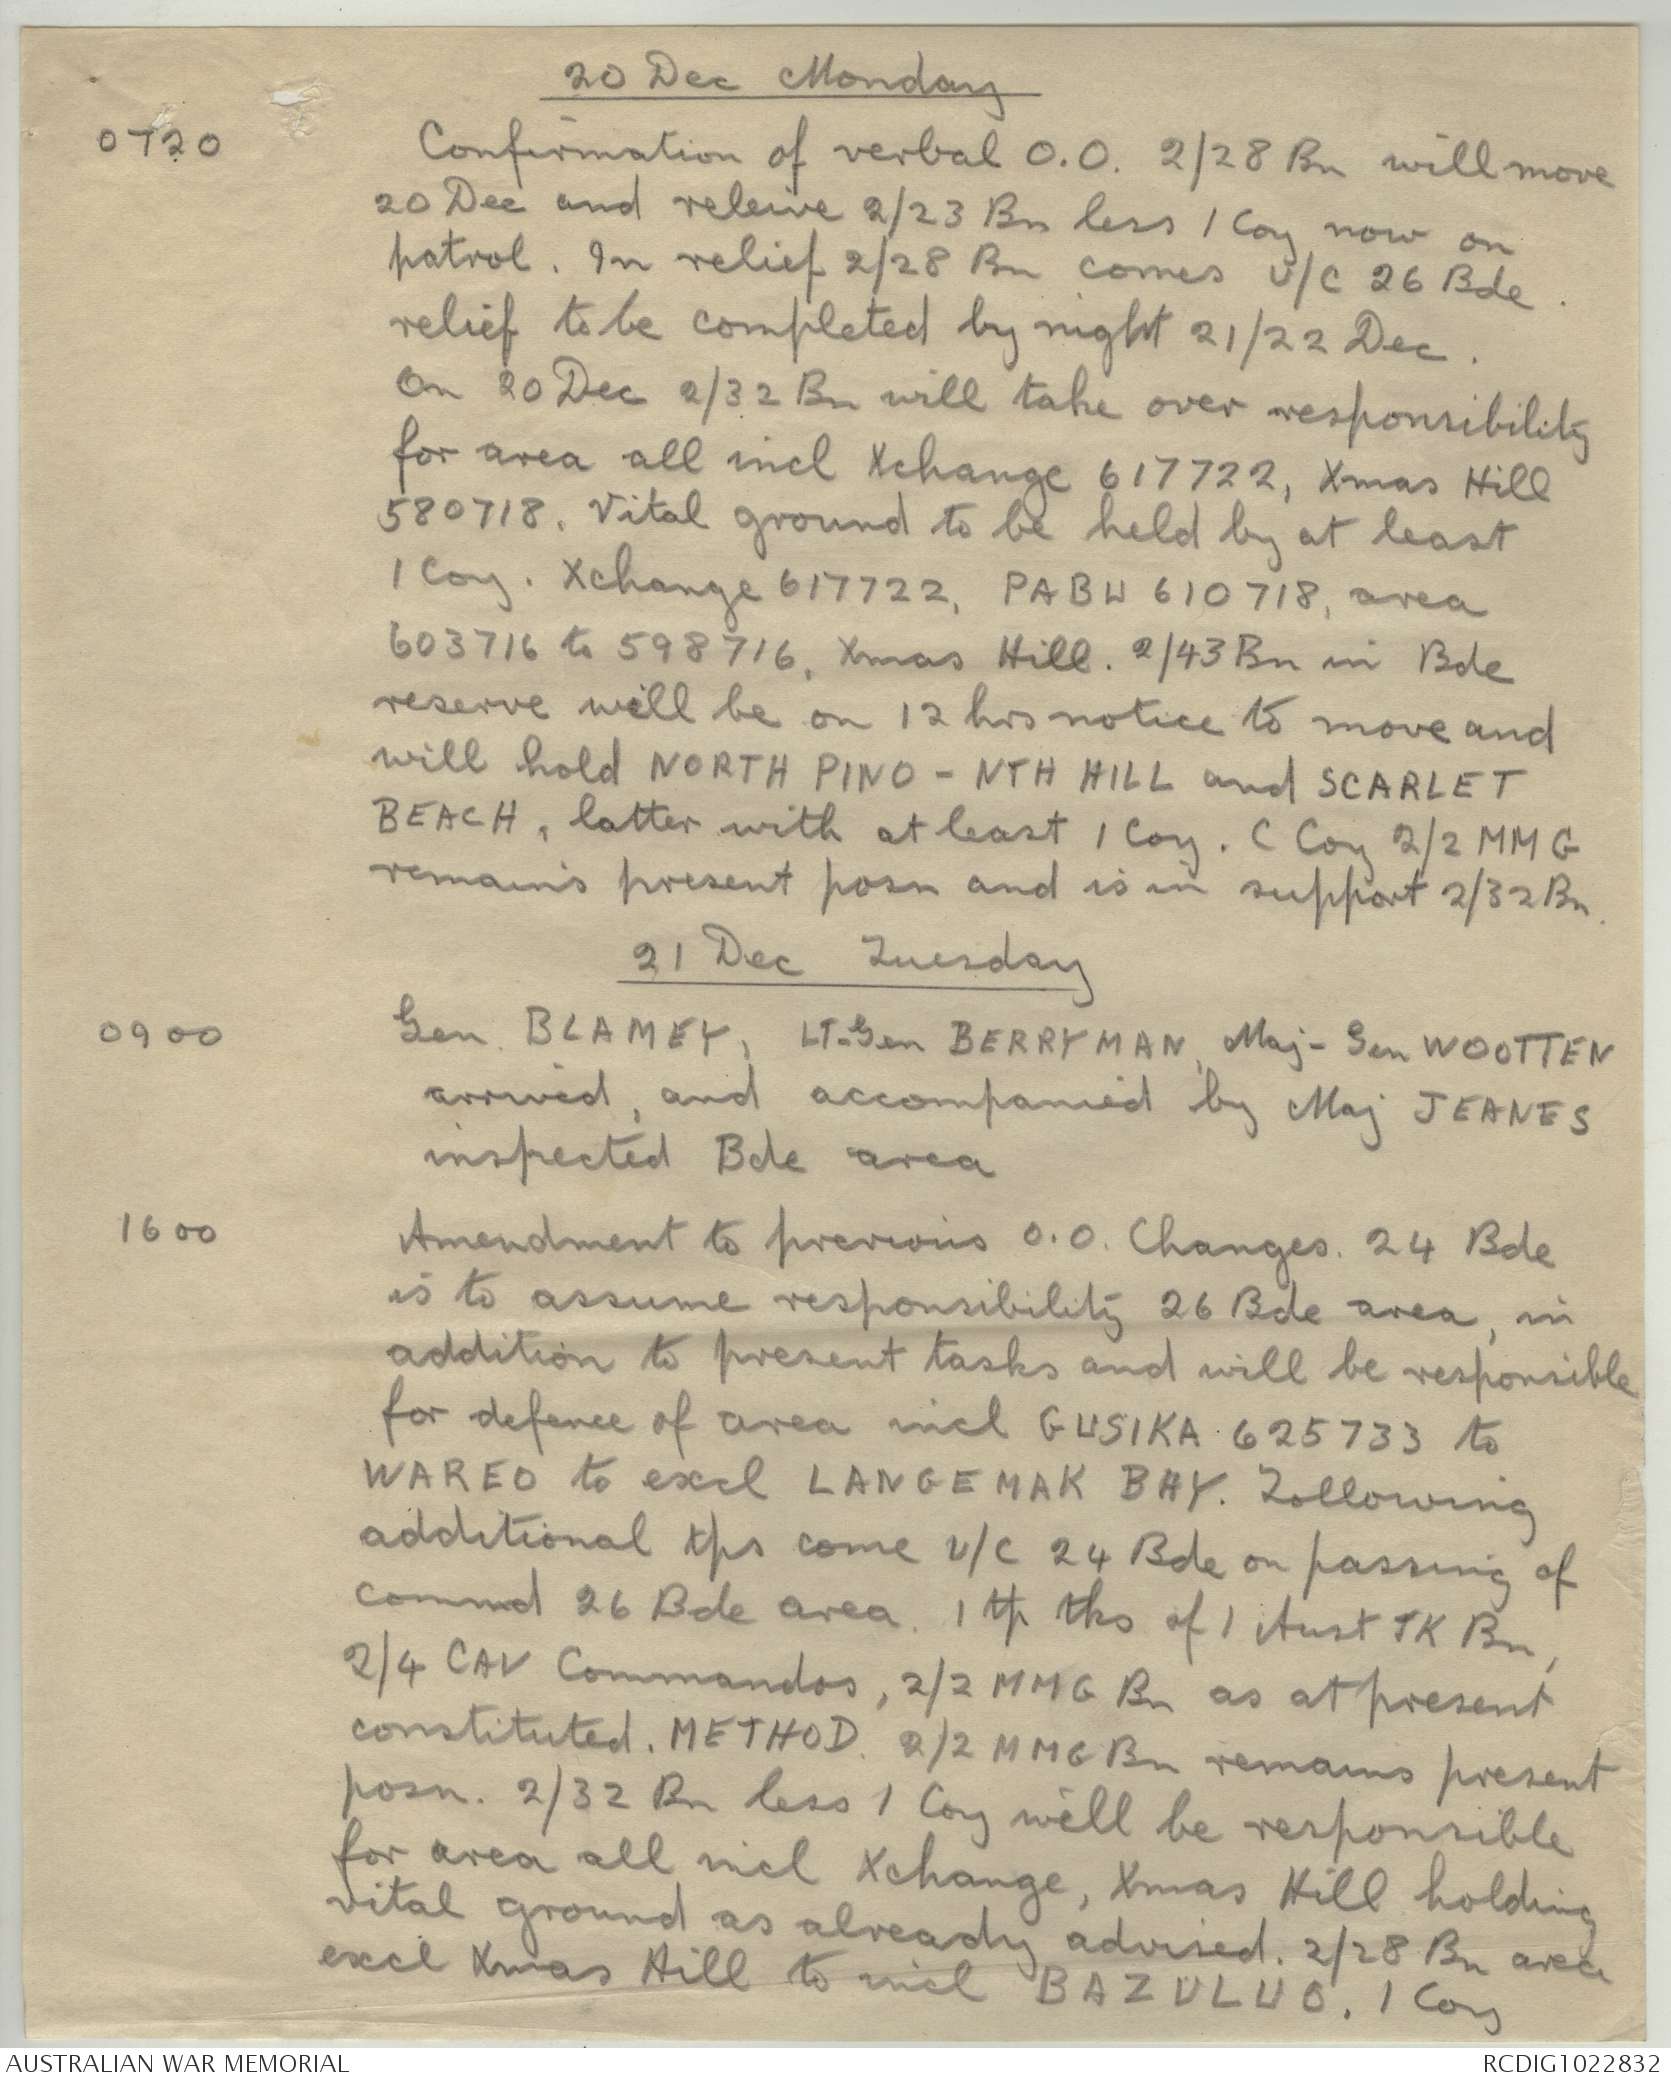 20 Dec Monday
0720 Confirmation of verbal O.O. 2/28 Bn will move
20 Dec and releive 2/23 Bn less 1 Coy now on
patrol. In relief 2/28 Bn comes U/C 26 Bde.
relief to be completed by night 21/22 Dec.
On 20 Dec 2/32 Bn will take over responsibility
for area all incl Xchange 617722, Xmas Hill
580718. Vital ground to be held by at least
1 Coy. Xchange 617722, PABU 610718, area
603716 to 598716, Xmas Hill. 2/43 Bn in Bde
reserve will be on 12 hrs notice to move and
will hold NORTH PINO - NTH HILL and SCARLET
BEACH, latter with at least 1 Coy. C Coy 2/2 MMG
remains present posn and is in support 2/32 Bn.
21 Dec Tuesday
0900 Gen. BLAMEY, LT-Gen BERRYMAN, Maj-Gen WOOTTEN
arrived, and accompanied by Maj JEANES
inspected Bde area
1600 Amendment to previous O.O. Changes. 24 Bde
is to assume responsibility 26 Bde area, in
addition to present tasks and will be responsible
for defence of area incl GUSIKA 625733 to
WAREO to excl LANGEMAK BAY. Following
additional tps come U/C 24 Bde on passing of
commd 26 Bde area. 1 tp tks of 1 Aust TK Bn,
2/4 CAV Commandos, 2/2 MMG Bn as at present
constituted. METHOD. 2/2 MMG Bn remains present
posn. 2/32 Bn less 1 Coy will be responsible
for area all incl Xchange, Xmas Hill holding
vital ground as already advised. 2/28 Bn area
excl Xmas Hill to incl BAZULUO. 1 Coy
AUSTRALIAN WAR MEMORIAL
RCDIG1022832